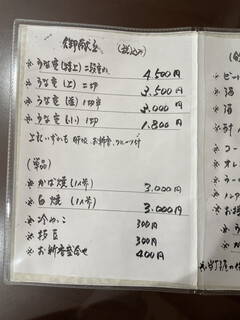 御献立 (税込み)
※ うな重(特上)二段重ね 4,500円
※ うな重(上)二切 3,500円
※ うな重(並)一切半 3,000円
※ うな重(小)一切 1,800円
上記いずれも 肝吸、お新香、フルーツ付
(単品)
※ かば焼(1人前) 3,000円
※ 白焼(1人前) 3,000円
※ 冷やっこ 300円
※ 枝豆 300円
※ お新香盛合せ 400円
※ ビー
※ 酒
※ 酒
※
※ コー
※ オレ
※ ウー